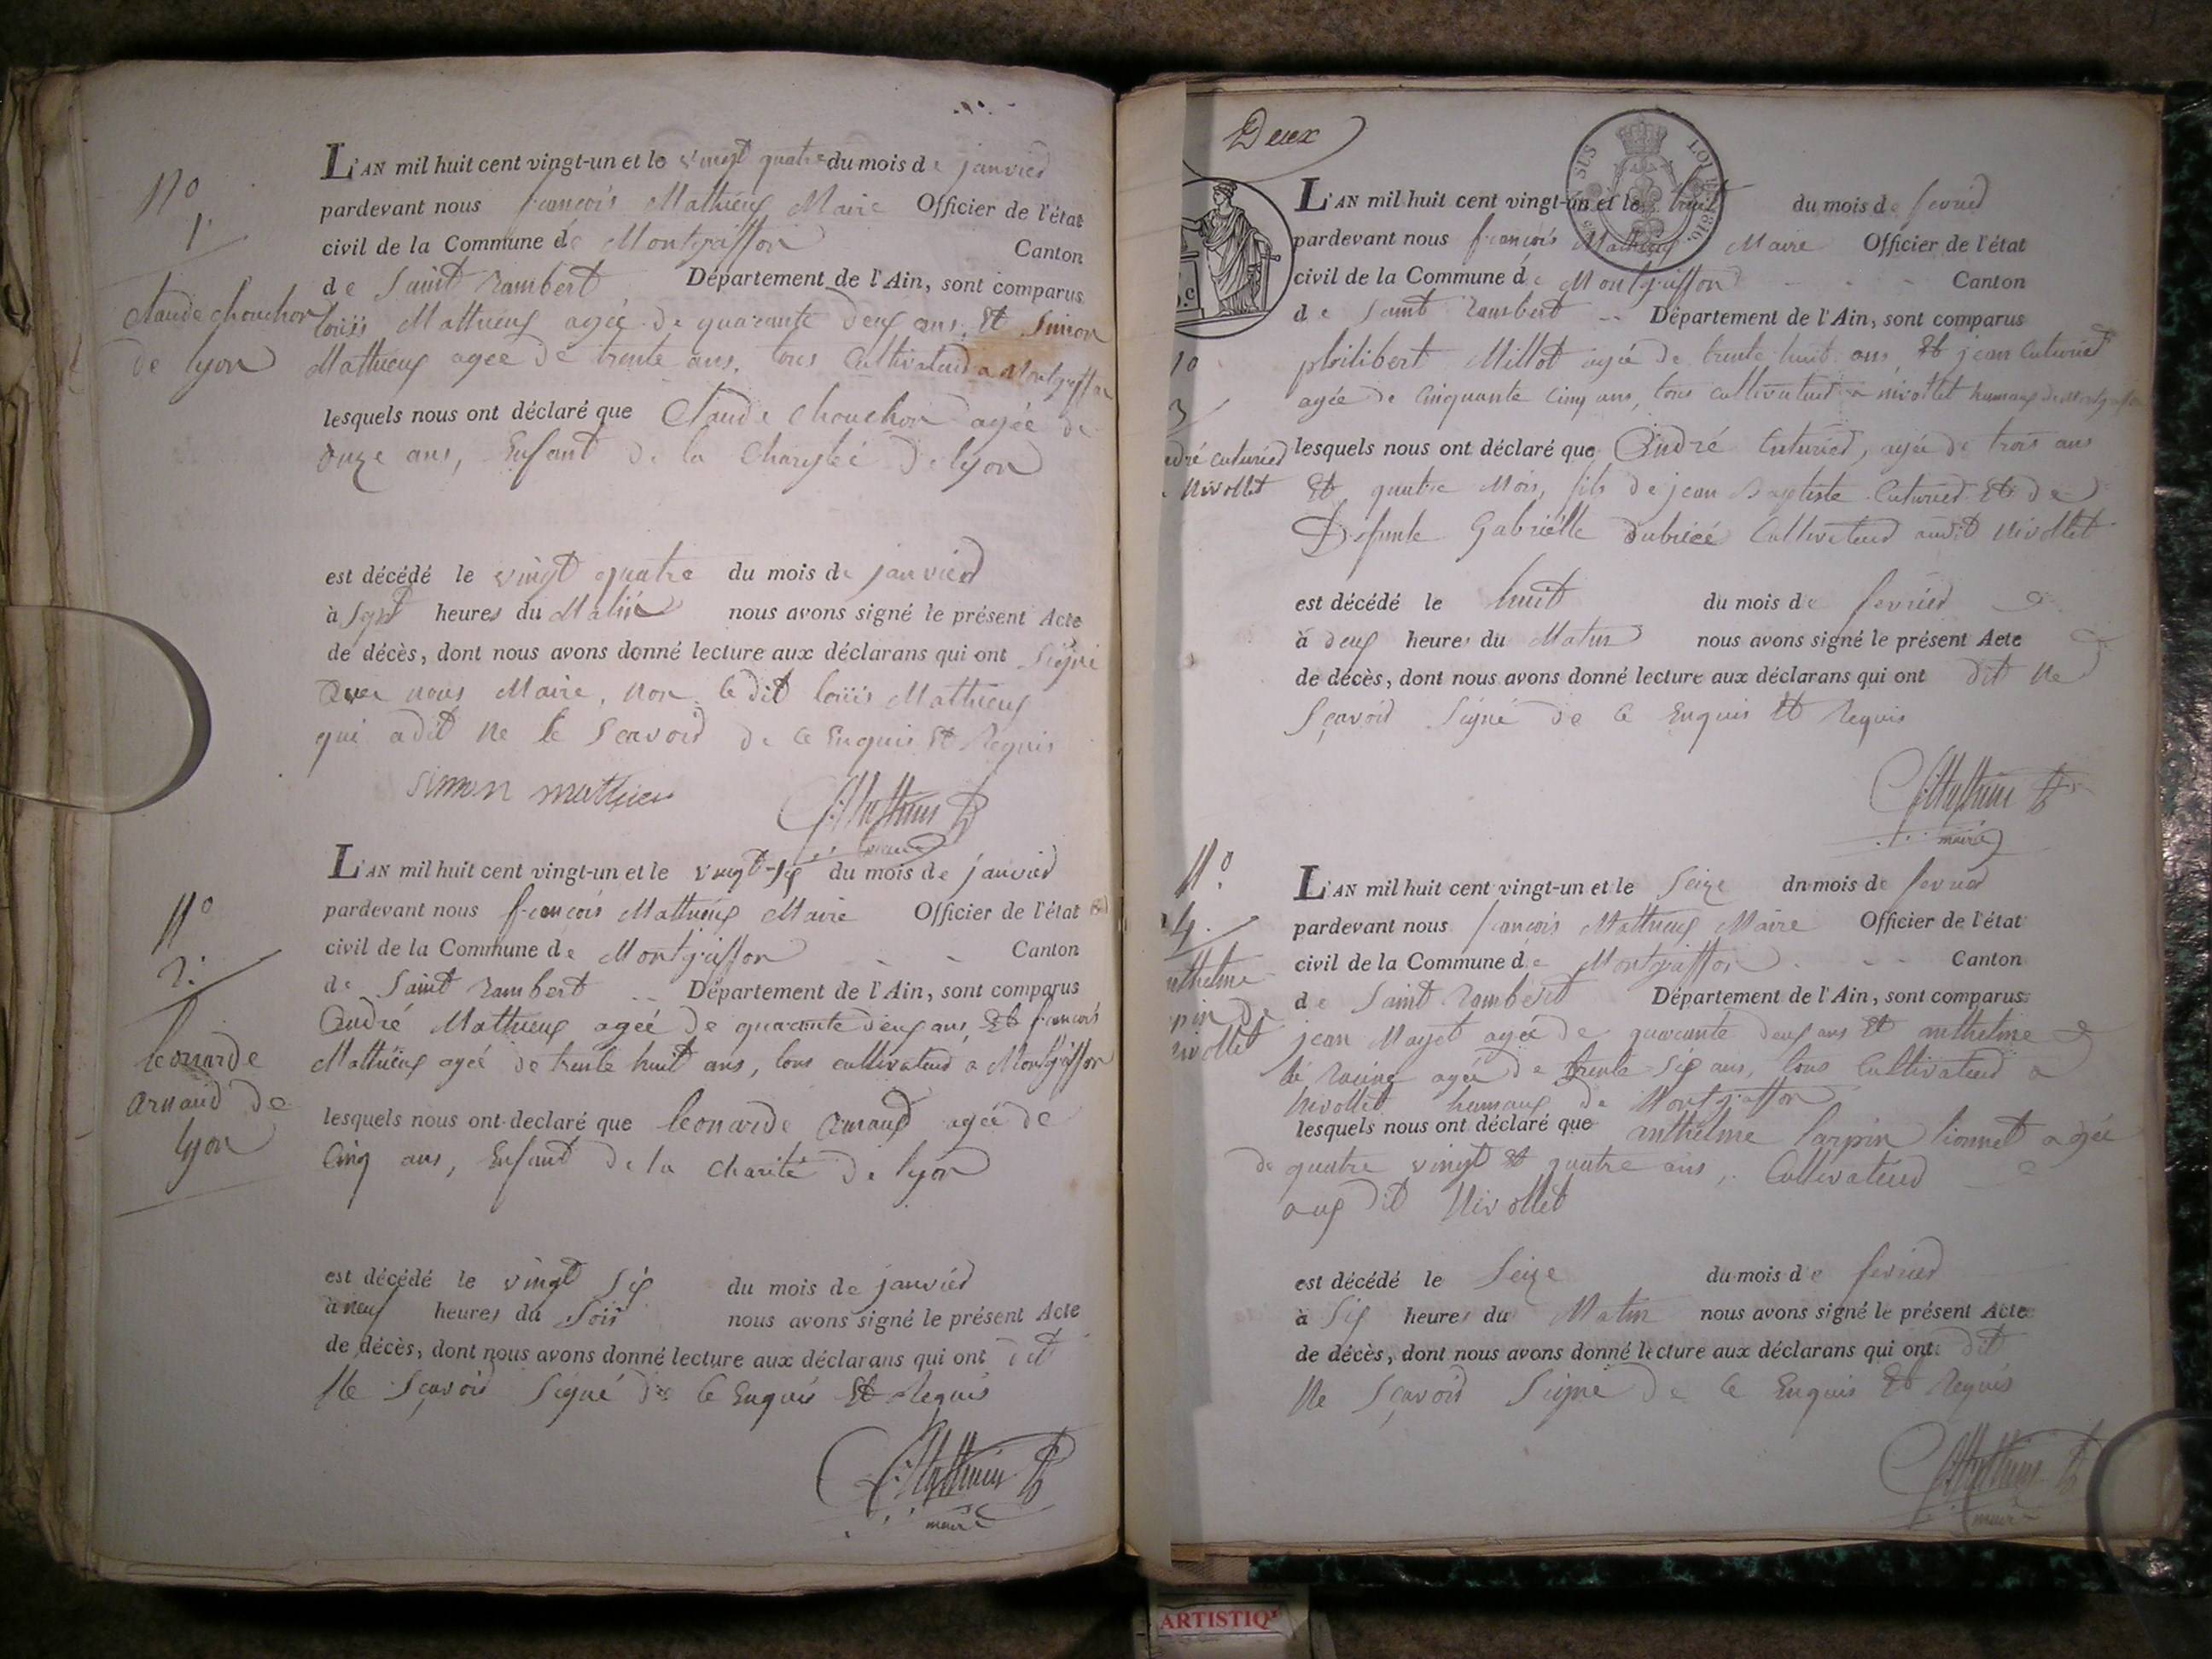 N.o
1.
Claude chouchon
de lyon
L'AN mil huit cent vingt-un et le vingt quatre du mois de janvier
pardevant nous françois Mathieux Maire Officier de l'état
civil de la Commune de Montgriffon Canton
de Saint Rambert Département de l'Ain, sont comparus
loüis Mathieux ageé de quarante deux ans, Et Simon
Mathieux ageé de trente ans, tous Cultivateurs a Montgriffon
lesquels nous ont déclaré que Claude Chouchon ageé de
onze ans, Enfant de la Charytée de lyon
est décédé le vingt quatre du mois de janvier
à Sept heures du Matin nous avons signé le présent Acte
de décès, dont nous avons donné lecture aux déclarans qui ont Signé
avec nous Maire, non le dit loüis Mathieux
qui a dit Ne le Scavoir de ce Enquis Et Requis
simon mathieu
f. Mathieux
maire
N.o
2.
leonarde
arnaud de
lyon
L'AN mil huit cent vingt-un et le vingt-six du mois de janvier
pardevant nous françois Mathieux Maire Officier de l'état
civil de la Commune de Montgriffon - - Canton
de Saint Rambert -- Département de l'Ain, sont comparus
André Mathieux ageé de quarante deux ans, Et françois
Mathieux ageé de trente huit ans, tous cultivateurs a Montgriffon
lesquels nous ont declaré que leonarde arnaud ageé de
Cinq ans, Enfant de la charité de lyon
est décédé le vingt Six du mois de janvier
à neuf heures du Soir nous avons signé le présent Acte
de décès, dont nous avons donné lecture aux déclarans qui ont dit
Ne Sçavoir Signé de Ce Enquis Et Requis
f. Mathieux
maire
Deux
LOI 1816.
3
dré cuturier
Nivollet
L'AN mil huit cent vingt-un et le huit du mois de fevrier
pardevant nous françois Mathieux Maire Officier de l'état
civil de la Commune de Montgriffon - - - Canton
de Saint Rambert -- Département de l'Ain, sont comparus
philibert Millot ageé de trente huit ans, Et jean Cuturier
ageé de Cinquante Cinq ans, tous cultivateurs a nivollet hamaux de Montgriffon
lesquels nous ont déclaré que André Cuturier, ageé de trois ans
Et quatre Mois, fils de jean Baptiste Cuturier Et de
Défunte Gabriélle dubicé Cultivateur audit Nivollet
est décédé le huit du mois de fevrier
à deux heures du Matin nous avons signé le présent Acte
de décès, dont nous avons donné lecture aux déclarans qui ont dit Ne
Sçavoir Signé de Ce Enquis Et Requis
f. Mathieux
maire
N.o
4.
nthelme
pin de
nivollet
L'AN mil huit cent vingt-un et le Seize du mois de fevrier
pardevant nous françois Mathieux Maire Officier de l'état
civil de la Commune de Montgriffon - - - Canton
de Saint Rambert Département de l'Ain, sont comparus
jean Mayet ageé de quarante deux ans Et anthelme
bé Racine ageé de trente Six ans, tous Cultivateurs a
Nivollet hamaux de Montgriffon
lesquels nous ont déclaré que anthelme Carpin lionnet ageé
de quatre vingt Et quatre ans, Cultivateur
aux dit Nivollet
est décédé le Seize du mois de fevrier
à Six heures du Matin nous avons signé le présent Acte
de décès, dont nous avons donné lecture aux déclarans qui ont dit
Ne Sçavoir Signe de Ce Enquis Et Requis
f. Mathieux
maire
ARTISTIQ